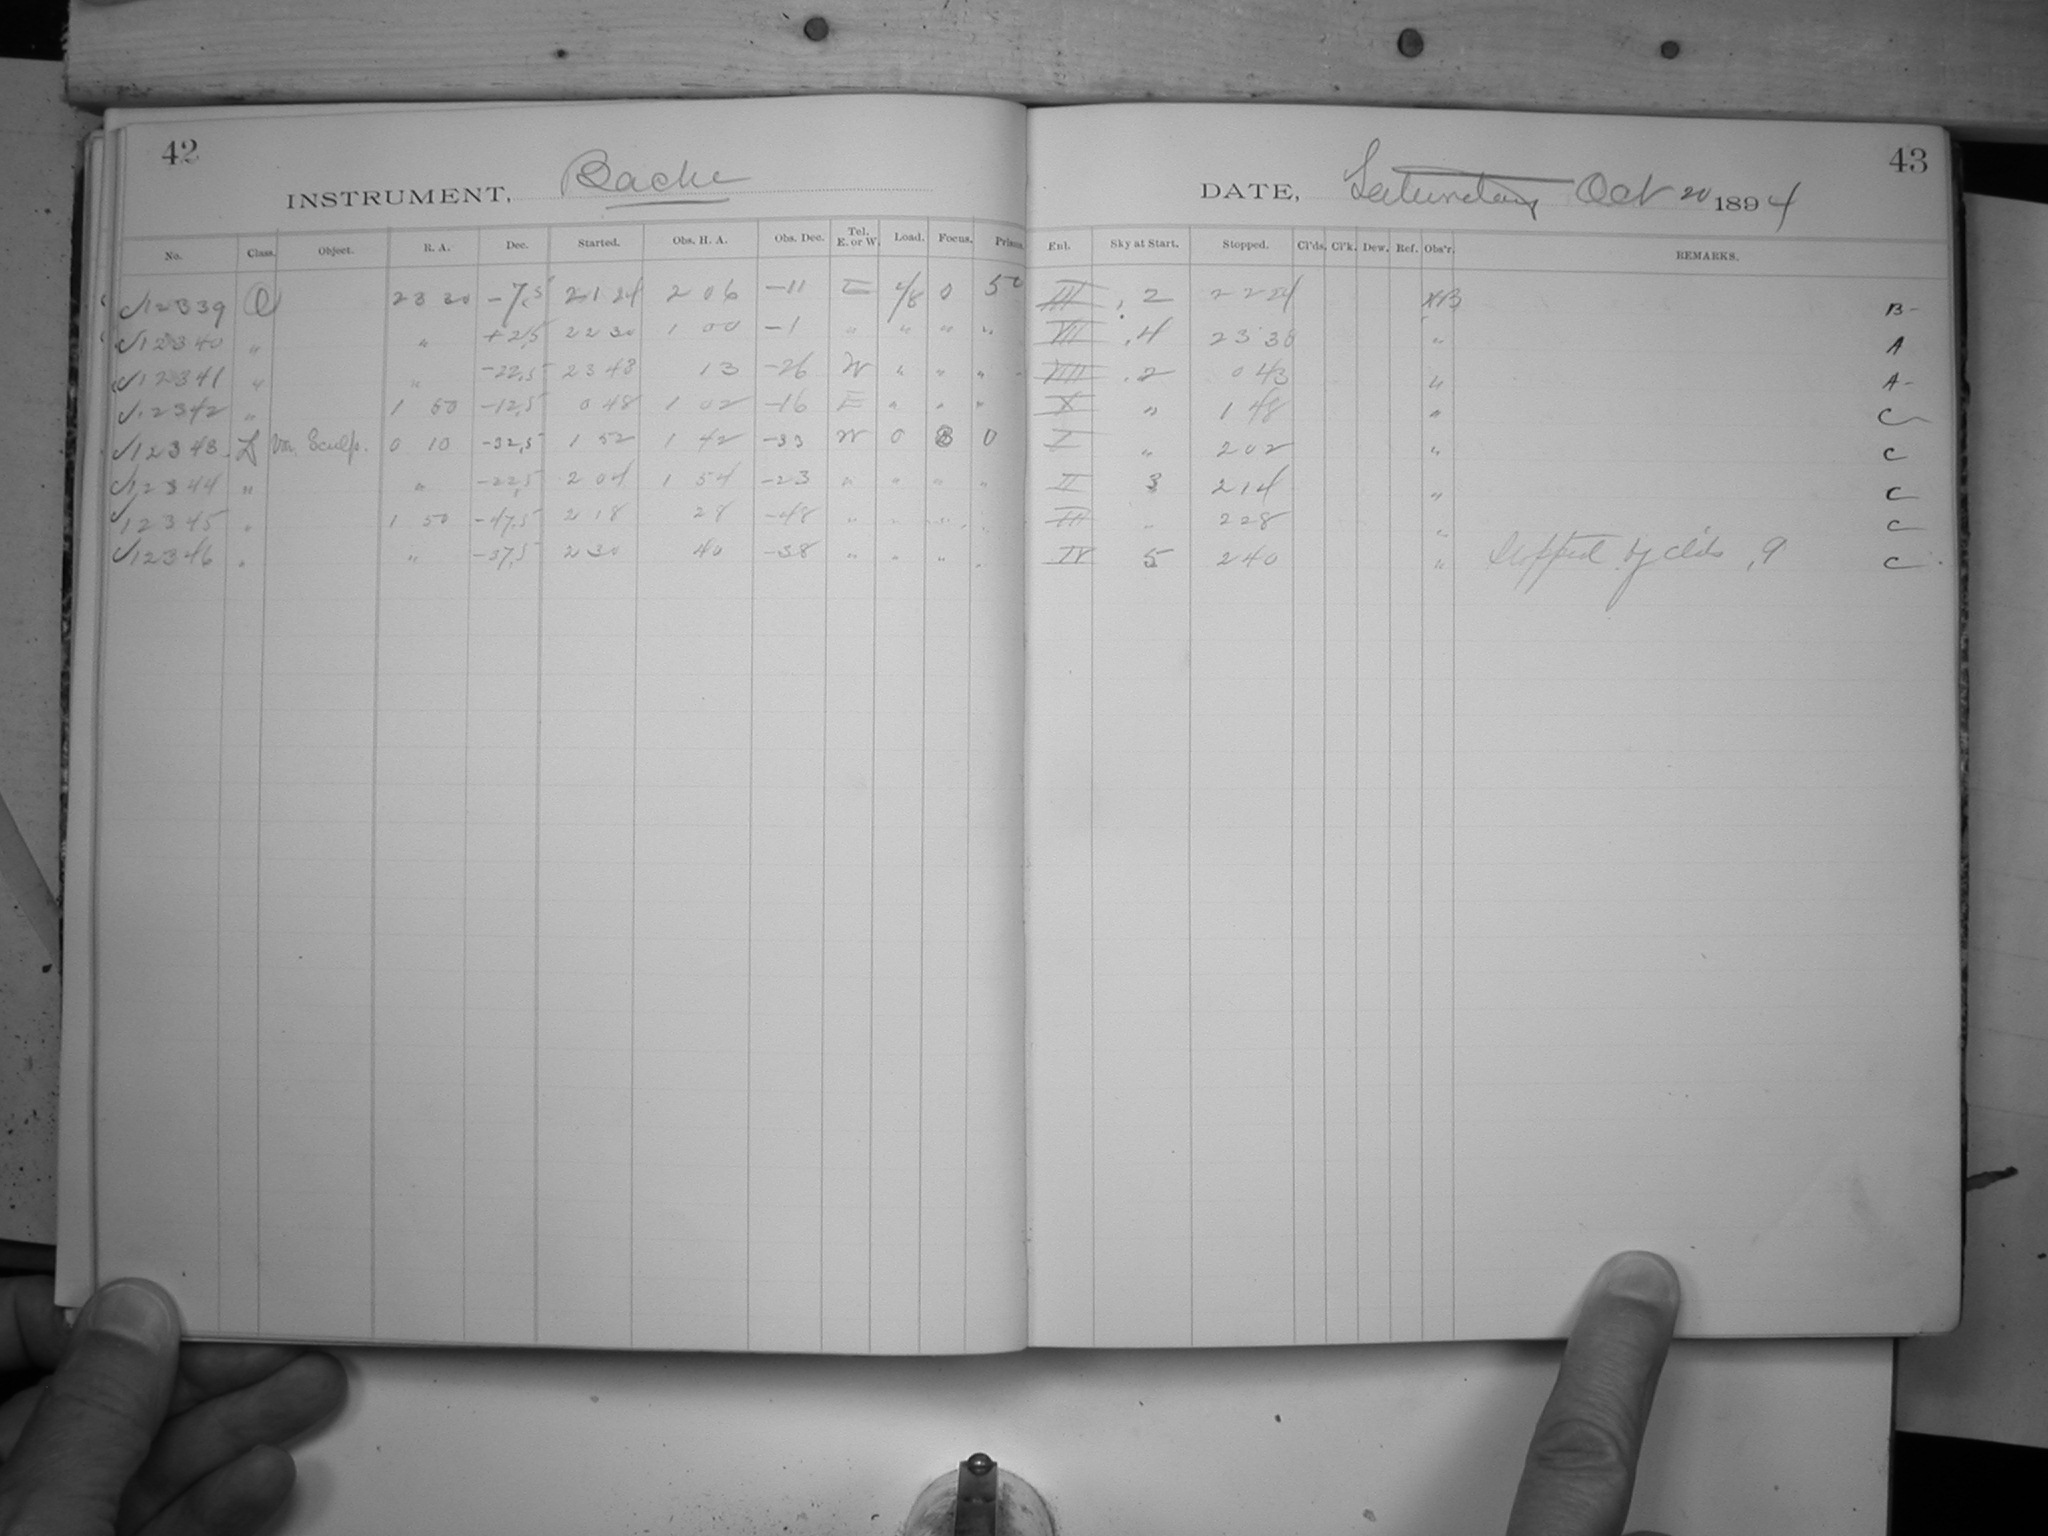 42
INSTRUMENT, Bache
No. Class. Object. R. A. Dec. Started. Obs. H. A. Obs. Dec. Tel. E. or W. Load. Focus. Prism.
12339 O 23 20 -7,5 21 24 2 06 -11 E 0 50
12340 " " +2,5 22 30 1 00 -1 " " " "
12341 " " -22,5 23 48 13 -26 W " " "
12342 " 1 50 -12,5 0 48 1 02 -16 E " " "
12343 L Var. Sculp. 0 10 -32,5 1 52 1 42 -33 W 0 0
12344 " " -22,5 2 04 1 54 -23 " " " "
12345 " 1 50 -47,5 2 18 28 -48 " " " "
12346 " " -37,5 2 30 40 -38 " " " "
43
DATE, Saturday Oct 20 1894
Enl. Sky at Start. Stopped. Cl'ds. Cl'k. Dew. Ref. Obs'r. REMARKS.
III ,2 22 24 B-
VII ,4 23 38 " A
VIII ,2 0 43 " A-
X " 1 48 " C
I " 2 02 " C
II 3 2 14 " C
III " 2 28 " C
IV 5 2 40 " Stopped by clds ,9 C